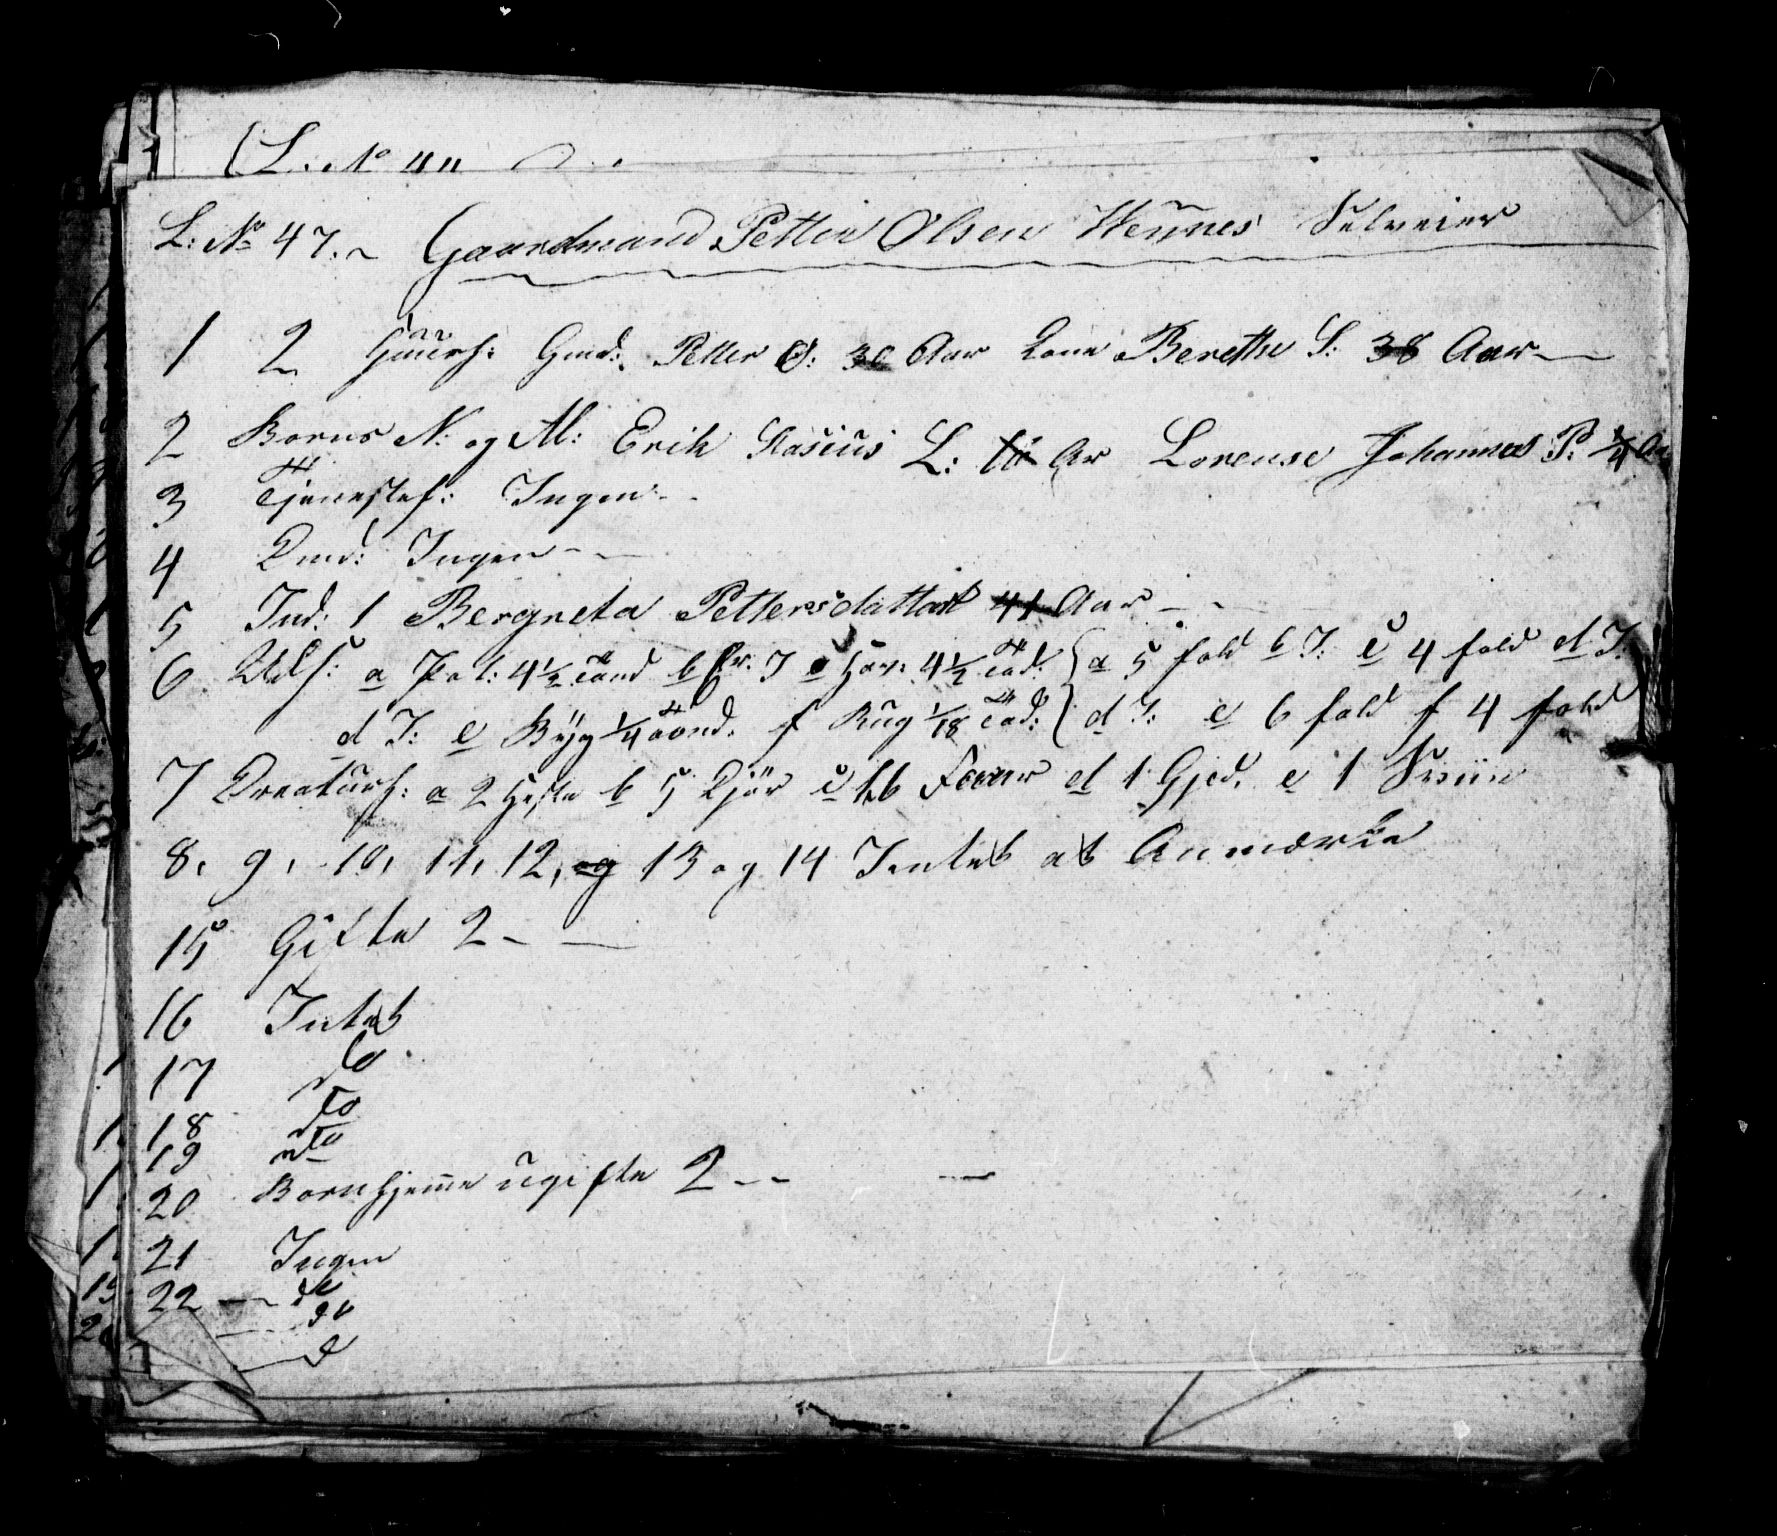 L: No 44
L: No 47. Gaardmand Petter Olsen Weÿnes Selveier
1 2 Gmd: Petter O: 30 Aar Kone Berethe S: 38 Aar
2 Børns N: og Al: Erik L: Ar Lorense Johannes P: 1/4 Aar
3 Tjenestef: Ingen
4 Ingen
5 Ind: 1 Bergreta Pettersdatter 41 Aar
6 Uds: a Pot: 4 1/2 Tønd b I c Hav: 4 1/2 Tød: a 5 fold b I: c 4 fold d I:
d I: e Byg 1/4 Tønd. f Rug 1/18 Tød: d I: e 6 fold f 4 fold
7 Creaturh: a 2 Heste b 5 Kjør c 16 Faar d 1 Gjed. e 1 Sviin
8, 9, 10, 11, 12, og 13 og 14 Intet at Anmærke
15 Gifte 2
16 Intet
17 do
18 do
19 do
20 Børn hjeme ugifte 2
21 Ingen
22 do